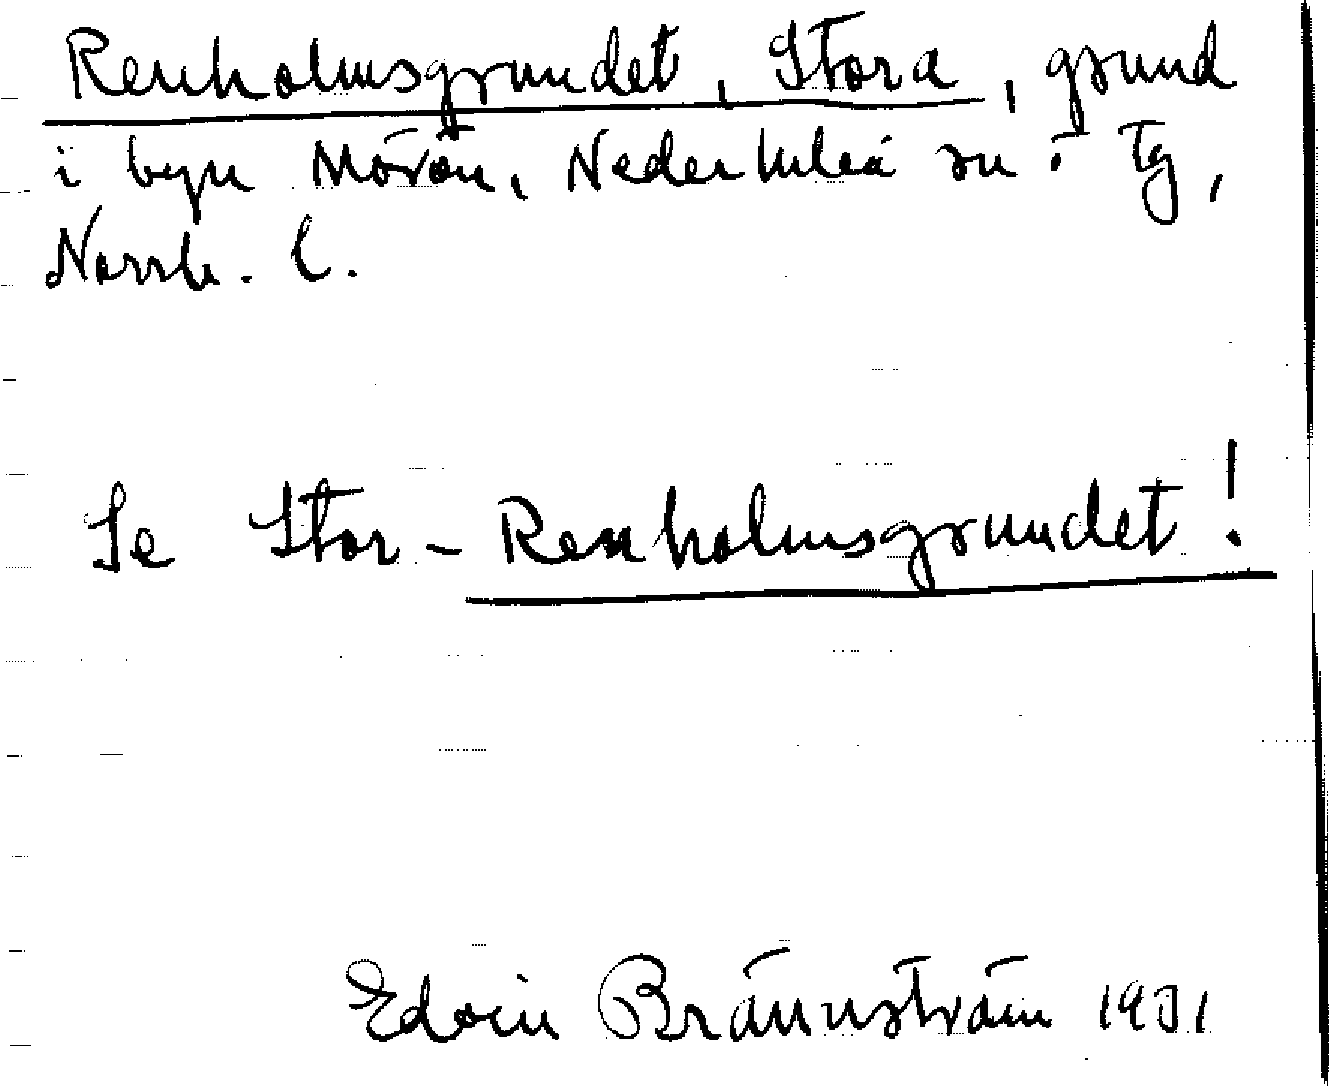 Renholmsgrundet, Stora, grund
i byn Mörön, Nederluleå sn o Tg,
Norrb. l.
Se Stor-Renholmsgrundet!
Edvin Brännström 1931